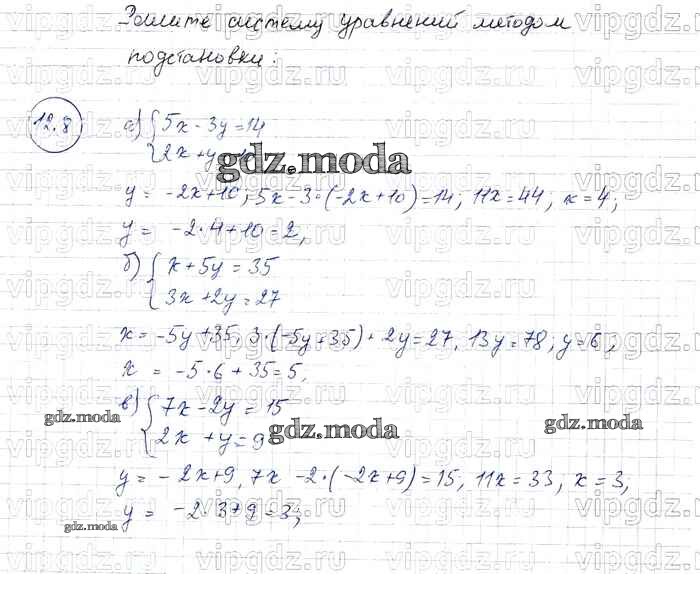 Решите систему уравнений методом
подстановки:
12.8
а) { 5x - 3y = 14
{ 2x + y
y = -2x+10; 5x - 3·(-2x+10) = 14; 11x = 44; x = 4;
y = -2·4+10 = 2,
б) { x + 5y = 35
{ 3x + 2y = 27
x = -5y +35, 3·(-5y+35) + 2y = 27, 13y = 78, y = 6,
x = -5·6 + 35 = 5,
в) { 7x - 2y = 15
{ 2x + y = 9
y = -2x+9, 7x - 2·(-2x+9) = 15, 11x = 33, x = 3,
y = -2·3+9 = 3;
gdz.moda
gdz.moda
gdz.moda
gdz.moda
gdz.moda
vipgdz.ru